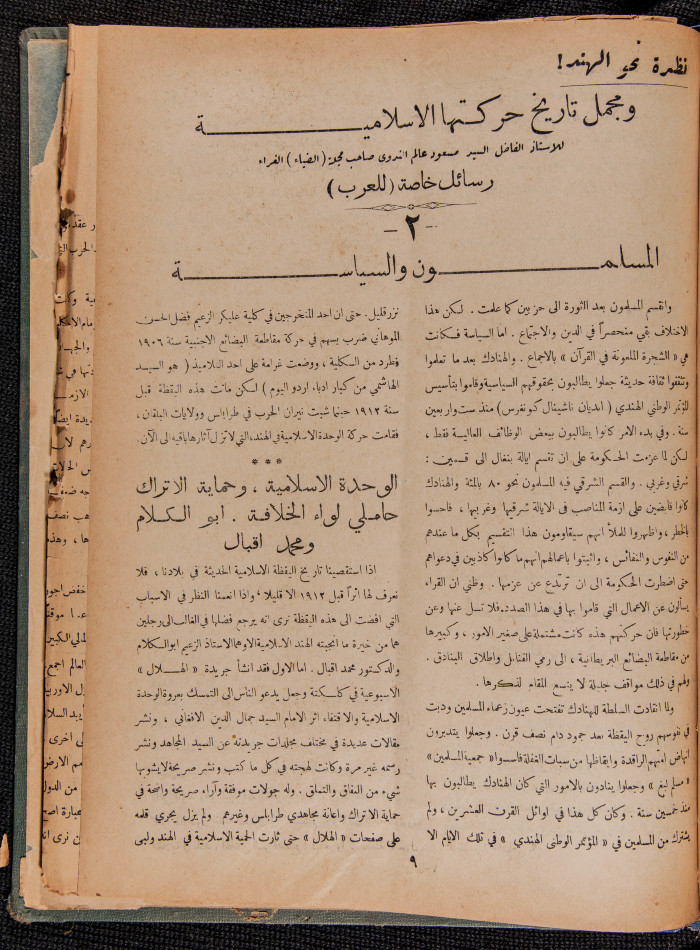 نظرة نحو الهند!
ومجمل تاريخ حركتها الاسلامية
للاستاذ الفاضل السيد مسعود عالم الندوى صاحب مجلة (الضياء) الغراء
رسائل خاصة (للعرب)
- ٢ -
المسلمون والسياسة
وانقسم المسلمون بعد الثورة الى حزبين كما علمت . لكن هذا
الاختلاف بقي منحصراً في الدين والاجتماع . اما السياسة فكانت
هي « الشجرة الملعونة في القرآن » بالاجماع . والهنادك بعد ما تعلموا
وتثقفوا ثقافة حديثة جعلوا يطالبون بحقوقهم السياسية وقاموا بتأسيس
المؤتمر الوطني الهندي ( انديان ناشينال كونغرس) منذ ست واربعين
سنة . وفي بدء الامر كانوا يطالبون ببعض الوظائف العالية فقط ،
لكن لما عزمت الحكومة على ان تقسم ايالة بنغال الى قسمين :
شرقي وغربي . والقسم الشرقي فيه المسلمون نحو ٨٠ بالمئة والهنادك
كانوا قابضين على ازمة المناصب في الايالة شرقيها وغربيها ، فاحسوا
بالخطر ، واظهروا للملأ انهم سيقاومون هذا التقسيم بكل ما عندهم
من النفوس والنفائس ، واثبتوا باعمالهم انهم ما كانوا كاذبين في دعواهم
حتى اضطرت الحكومة الى ان ترتدع عن عزمها . وظني ان القراء
يسألون عن الاعمال التي قاموا بها في هذا الصدد فلا تسل عنها وعن
خطورتها فان حركتهم هذه كانت مشتملة على صغير الامور ، وكبيرها
من مقاطعة البضائع البريطانية ، الى رمي القنابل واطلاق البنادق .
ولهم في ذلك مواقف جليلة لا يتسع المقام لذكرها .
ولما انقادت السلطة للهنادك تفتحت عيون زعماء المسلمين ودبت
في نفوسهم روح اليقظة بعد جمود دام نصف قرن . وجعلوا يتدبرون
انهاض امتهم الراقدة وايقاظها من سبات الغفلة فأسسوا « جمعية المسلمين »
« مسلم ليغ » وجعلوا ينادون بالامور التي كان الهنادك يطالبون بها
منذ خمسين سنة . وكان كل هذا في اوائل القرن العشرين ، ولم
يشترك من المسلمين في « المؤتمر الوطني الهندي » في تلك الايام الا
نزر قليل . حتى ان احد المتخرجين في كلية عليكر الزعيم فضل الحسن
الموهاني ضرب بسهم في حركة مقاطعة البضائع الاجنبية سنة ١٩٠٦
فطرد من الكلية ، ووضعت غرامة على احد التلاميذ ( هو السيد
الهاشمي من كبار ادباء اردو اليوم ) لكن ماتت هذه اليقظة قبل
سنة ١٩١٢ حينما شبت نيران الحرب في طرابلس وولايات البلقان ،
فقامت حركة الوحدة الاسلامية في الهند، التي لا تزل آثارها باقيه الى الآن.
***
الوحدة الاسلامية ، وحماية الاتراك
حاملي لواء الخلافة . ابو الكلام
ومحمد اقبال
اذا استقصينا تاريخ اليقظة الاسلامية الحديثة في بلادنا ، فلا
نعرف لها اثراً قبل ١٩١٢ الا قليلا ، واذا انعمنا النظر في الاسباب
التي افضت الى هذه اليقظة نرى انه يرجع فضلها في الغالب الى رجلين
هما من خيرة ما انجبته الهند الاسلامية الا وهما الاستاذ الزعيم ابو الكلام
والدكتور محمد اقبال . اما الاول فقد انشأ جريدة « الهلال »
الاسبوعية في كلكتة وجعل يدعو الناس الى التمسك بعروة الوحدة
الاسلامية والاقتفاء اثر الامام السيد جمال الدين الافغاني ، ونشر
مقالات عديدة في مختلف مجلدات جريدته عن السيد المجاهد ونشر
رسمه غير مرة وكانت لهجته في كل ما كتب ونشر صريحة لا يشوبها
شيء من النفاق والتملق . وله جولات موفقة وآراء صريحة واضحة في
حماية الاتراك واعانة مجاهدي طرابلس وغيرهم ولم يزل يجري قلمه
على صفحات « الهلال » حتى ثارت الحمية الاسلامية في الهند ولبى
٩